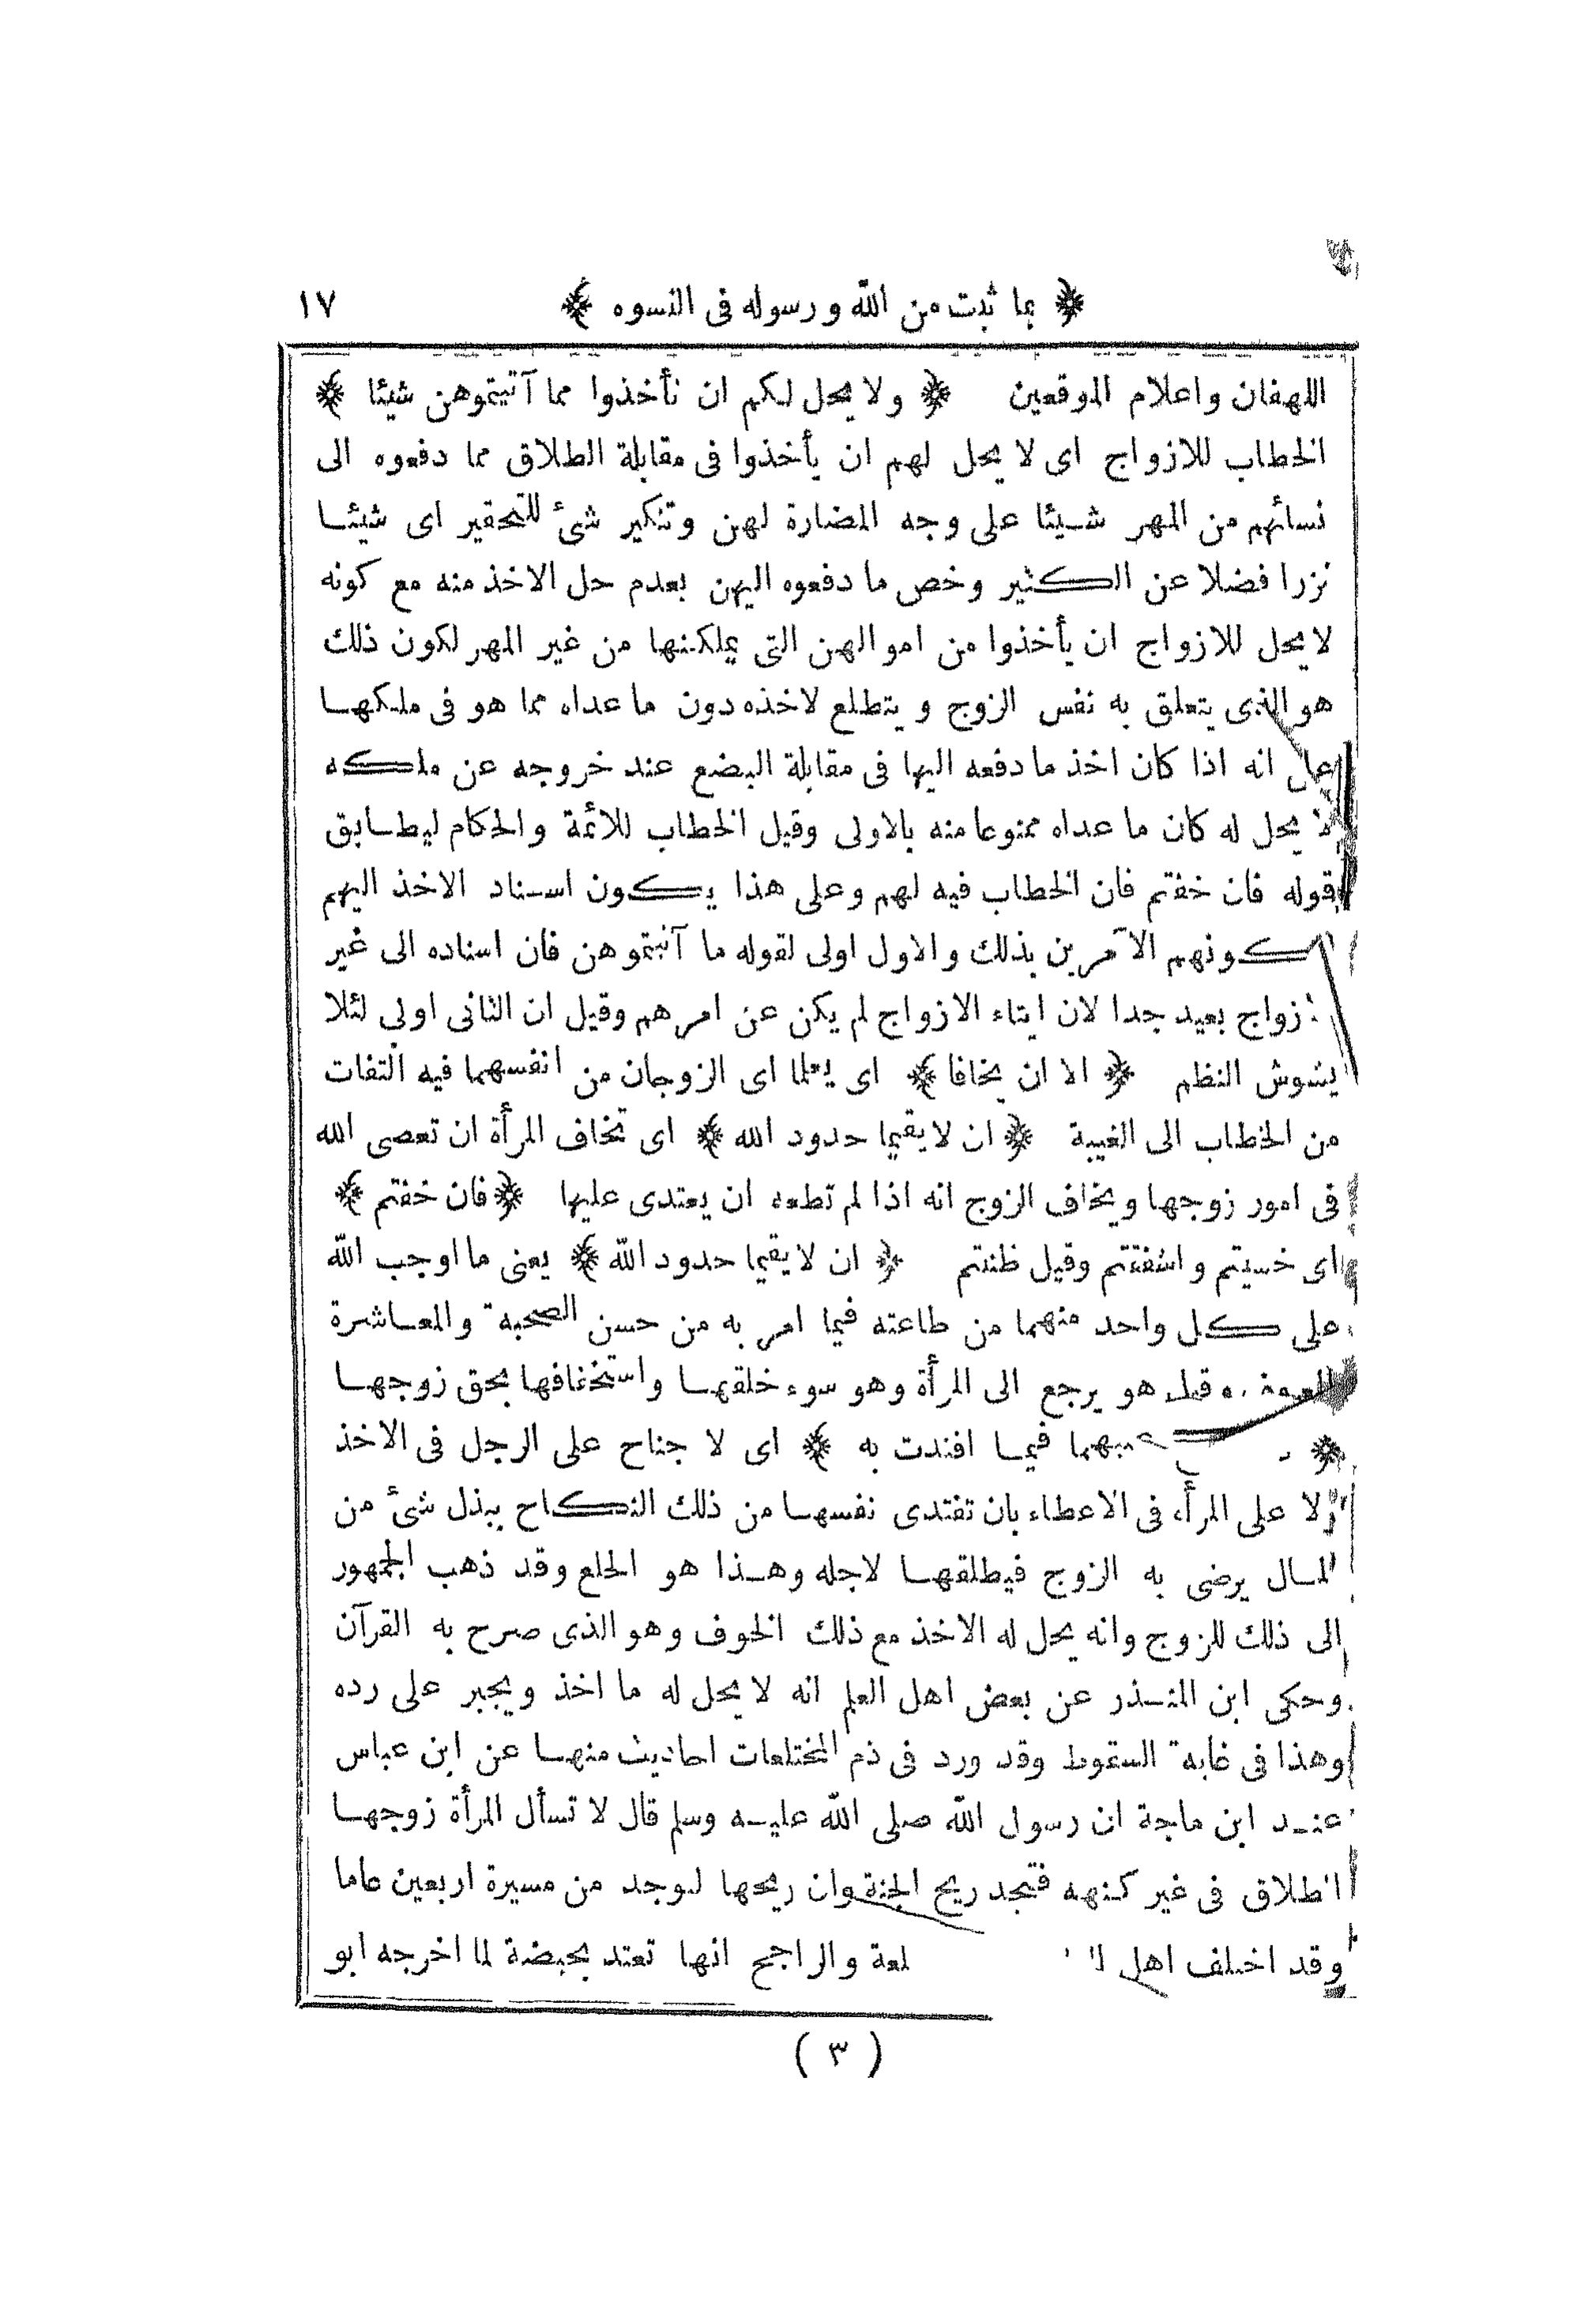 ﴿ بما ثبت من الله ورسوله فى النسوه ﴾ ١٧
اللهفان واعلام الموقعين ﴿ ولا يحل لكم ان تأخذوا مما آتيتموهن شيئا ﴾
الخطاب للازواج اى لا يحل لهم ان يأخذوا فى مقابلة الطلاق مما دفعوه الى
نسائهم من المهر شيئا على وجه المضارة لهن وتنكير شئ للتحقير اى شيئا
نزرا فضلا عن الكثير وخص ما دفعوه اليهن بعدم حل الاخذ منه مع كونه
لا يحل للازواج ان يأخذوا من اموالهن التى يملكنها من غير المهر لكون ذلك
هو الذى يتعلق به نفس الزوج ويتطلع لاخذه دون ما عداه مما هو فى ملكها
على انه اذا كان اخذ ما دفعه اليها فى مقابلة البضع عند خروجه عن ملكه
لا يحل له كان ما عداه ممنوعا منه بالاولى وقيل الخطاب للائمة والحكام ليطابق
قوله فان خفتم فان الخطاب فيه لهم وعلى هذا يكون اسناد الاخذ اليهم
لكونهم الآمرين بذلك والاول اولى لقوله ما آتيتموهن فان اسناده الى غير
زواج بعيد جدا لان ايتاء الازواج لم يكن عن امرهم وقيل ان الثانى اولى لئلا
يشوش النظم ﴿ الا ان يخافا ﴾ اى يعلما اى الزوجان من انفسهما فيه التفات
من الخطاب الى الغيبة ﴿ ان لا يقيما حدود الله ﴾ اى تخاف المرأة ان تعصى الله
فى امور زوجها ويخاف الزوج انه اذا لم تطعه ان يعتدى عليها ﴿ فان خفتم ﴾
اى خشيتم واشفقتم وقيل ظننتم ﴿ ان لا يقيما حدود الله ﴾ يعنى ما اوجب الله
على كل واحد منهما من طاعته فيما امر به من حسن الصحبة والمعاشرة
وقيل هو يرجع الى المرأة وهو سوء خلقها واستخفافها بحق زوجها
﴿ عليهما فيما افتدت به ﴾ اى لا جناح على الرجل فى الاخذ
ولا على المرأة فى الاعطاء بان تفتدى نفسها من ذلك النكاح ببذل شئ من
المال يرضى به الزوج فيطلقها لاجله وهذا هو الخلع وقد ذهب الجمهور
الى ذلك للزوج وانه يحل له الاخذ مع ذلك الخوف وهو الذى صرح به القرآن
وحكى ابن المنذر عن بعض اهل العلم انه لا يحل له ما اخذ ويجبر على رده
وهذا فى غاية السقوط وقد ورد فى ذم المختلعات احاديث منها عن ابن عباس
عند ابن ماجة ان رسول الله صلى الله عليه وسلم قال لا تسأل المرأة زوجها
الطلاق فى غير كنهه فتجد ريح الجنة وان ريحها ليوجد من مسيرة اربعين عاما
وقد اختلف اهل والراجح انها تعتد بحيضة لما اخرجه ابو
( ٣ )